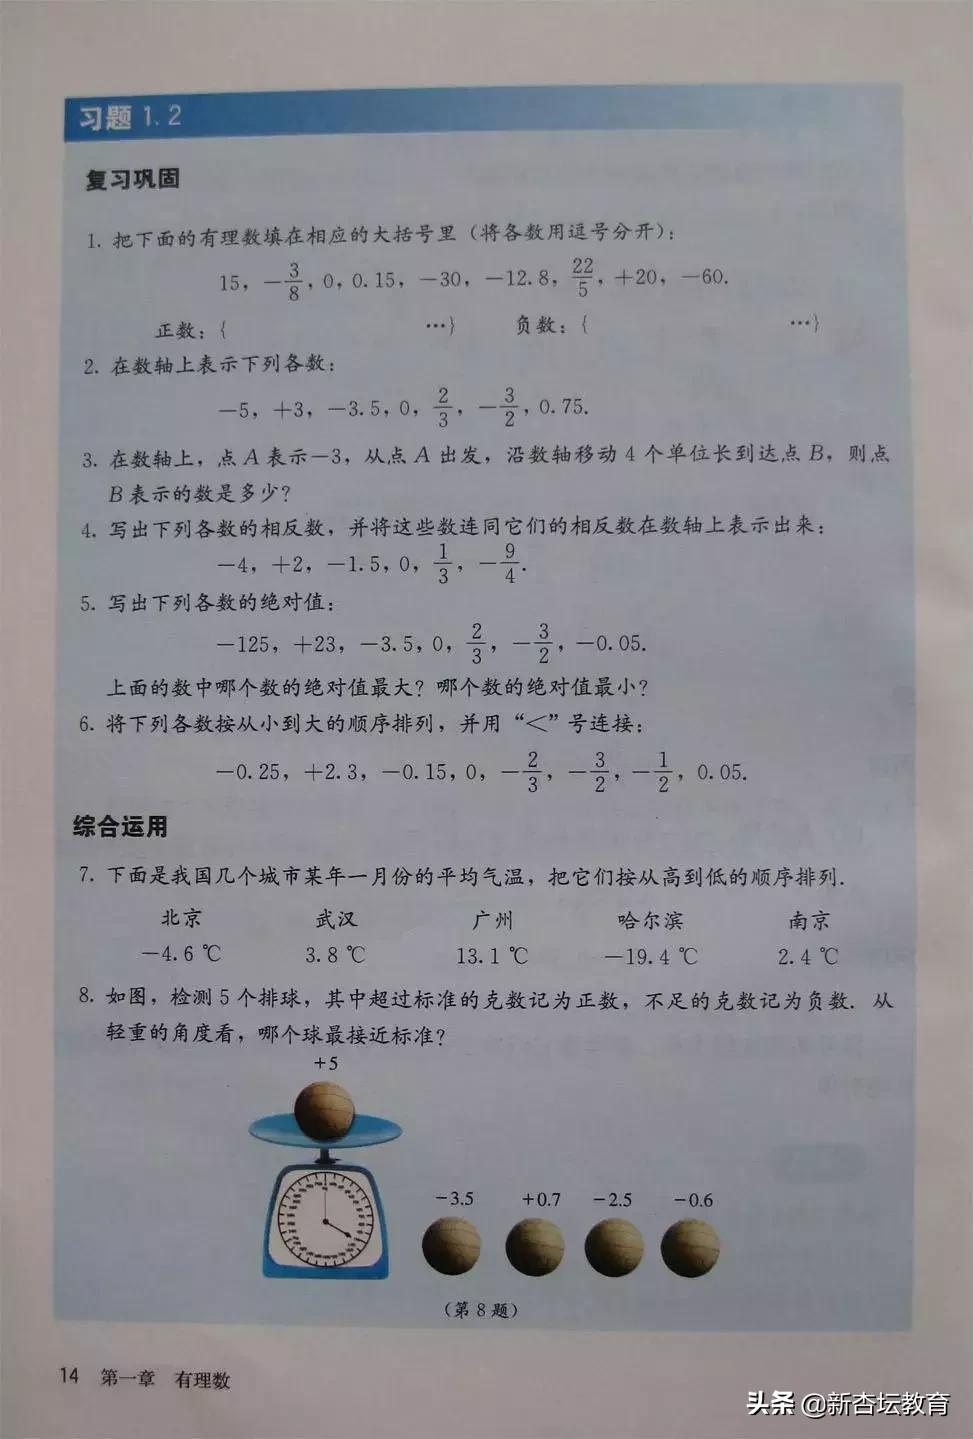 习题 1.2
复习巩固
1. 把下面的有理数填在相应的大括号里（将各数用逗号分开）：
15，-3/8，0，0.15，-30，-12.8，22/5，+20，-60.
正数：{ …} 负数：{ …}
2. 在数轴上表示下列各数：
-5，+3，-3.5，0，2/3，-3/2，0.75.
3. 在数轴上，点 A 表示-3，从点 A 出发，沿数轴移动 4 个单位长到达点 B，则点
B 表示的数是多少？
4. 写出下列各数的相反数，并将这些数连同它们的相反数在数轴上表示出来：
-4，+2，-1.5，0，1/3，-9/4.
5. 写出下列各数的绝对值：
-125，+23，-3.5，0，2/3，-3/2，-0.05.
上面的数中哪个数的绝对值最大？哪个数的绝对值最小？
6. 将下列各数按从小到大的顺序排列，并用“<”号连接：
-0.25，+2.3，-0.15，0，-2/3，-3/2，-1/2，0.05.
综合运用
7. 下面是我国几个城市某年一月份的平均气温，把它们按从高到低的顺序排列.
北京 武汉 广州 哈尔滨 南京
-4.6 ℃ 3.8 ℃ 13.1 ℃ -19.4 ℃ 2.4 ℃
8. 如图，检测 5 个排球，其中超过标准的克数记为正数，不足的克数记为负数. 从
轻重的角度看，哪个球最接近标准？
+5
-3.5 +0.7 -2.5 -0.6
（第 8 题）
14 第一章 有理数
头条 @新杏坛教育